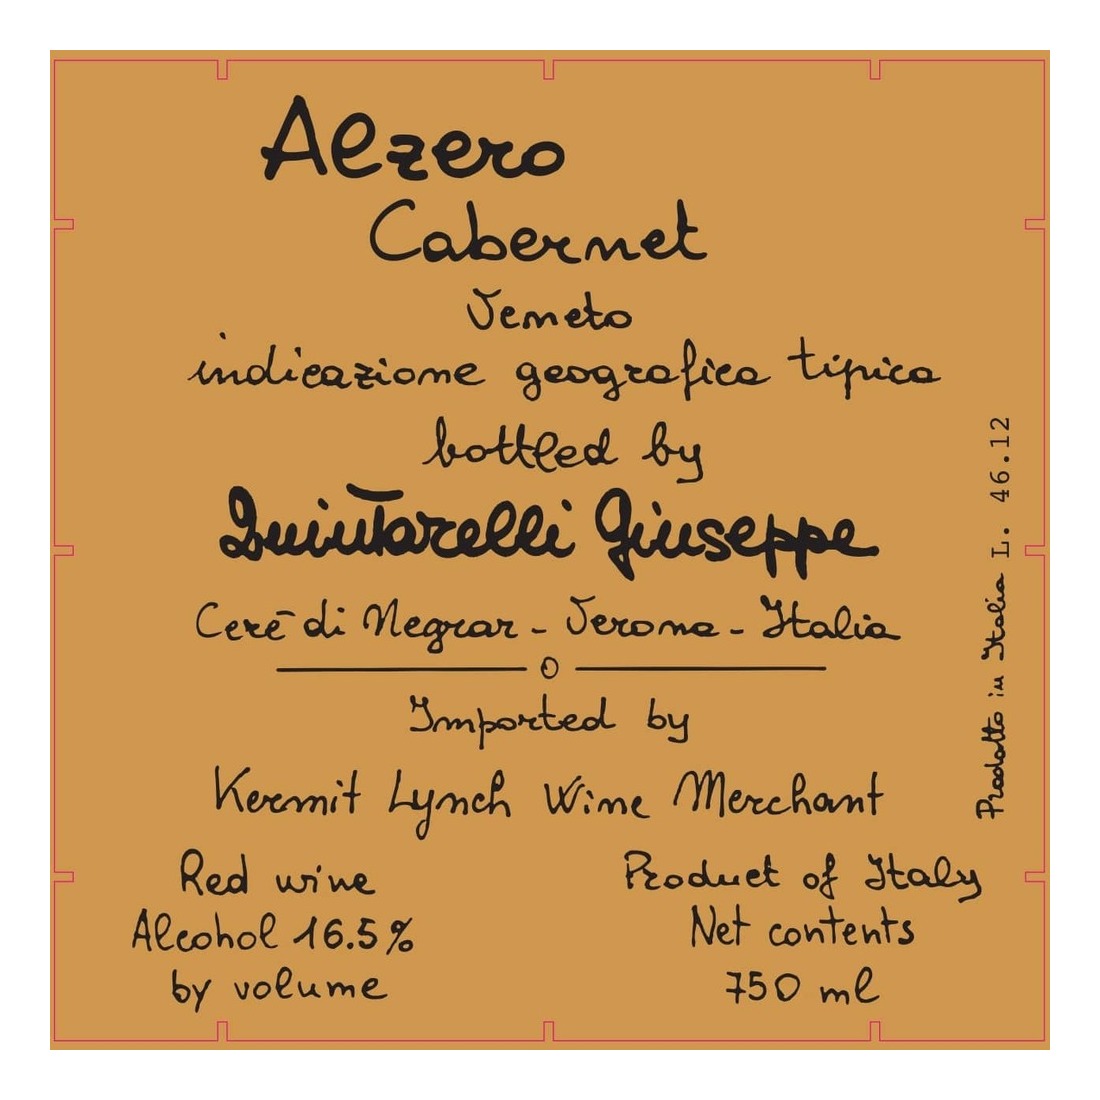 Alzero
Cabernet
Veneto
indicazione geografica tipica
bottled by
Quintarelli Giuseppe
Cerè di Negrar - Verona - Italia
O
Imported by
Kermit Lynch Wine Merchant
Red wine
Alcohol 16.5%
by volume
Product of Italy
Net contents
750 ml
Prodotto in Italia L. 46.12